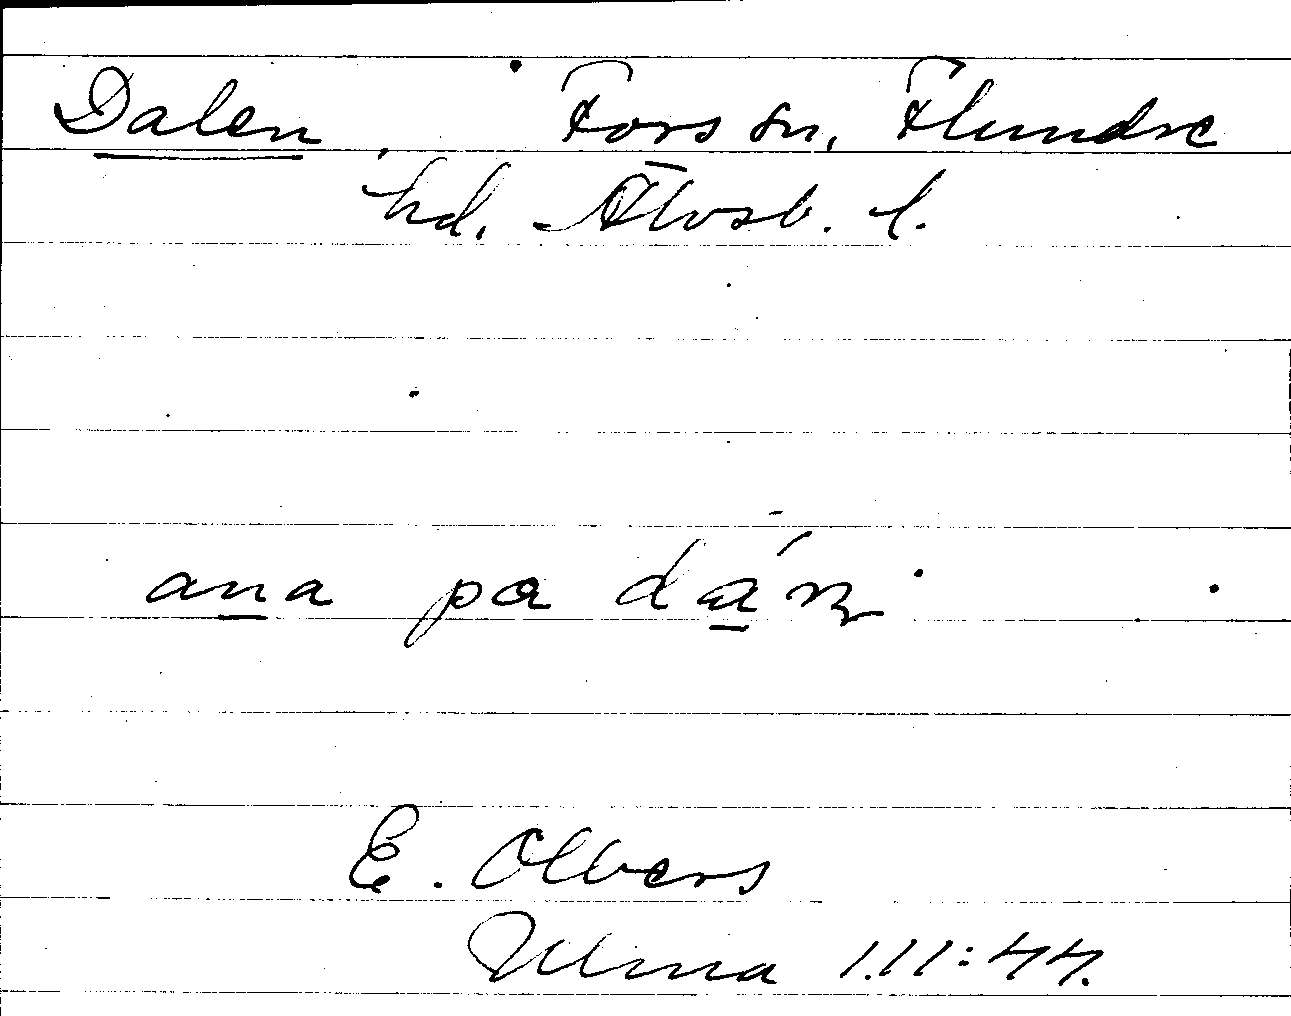 Dalen Fors sn, Flundre
hd. Älvsb. l.
ana pa dán
E. Olbers
Ulma 111:44.